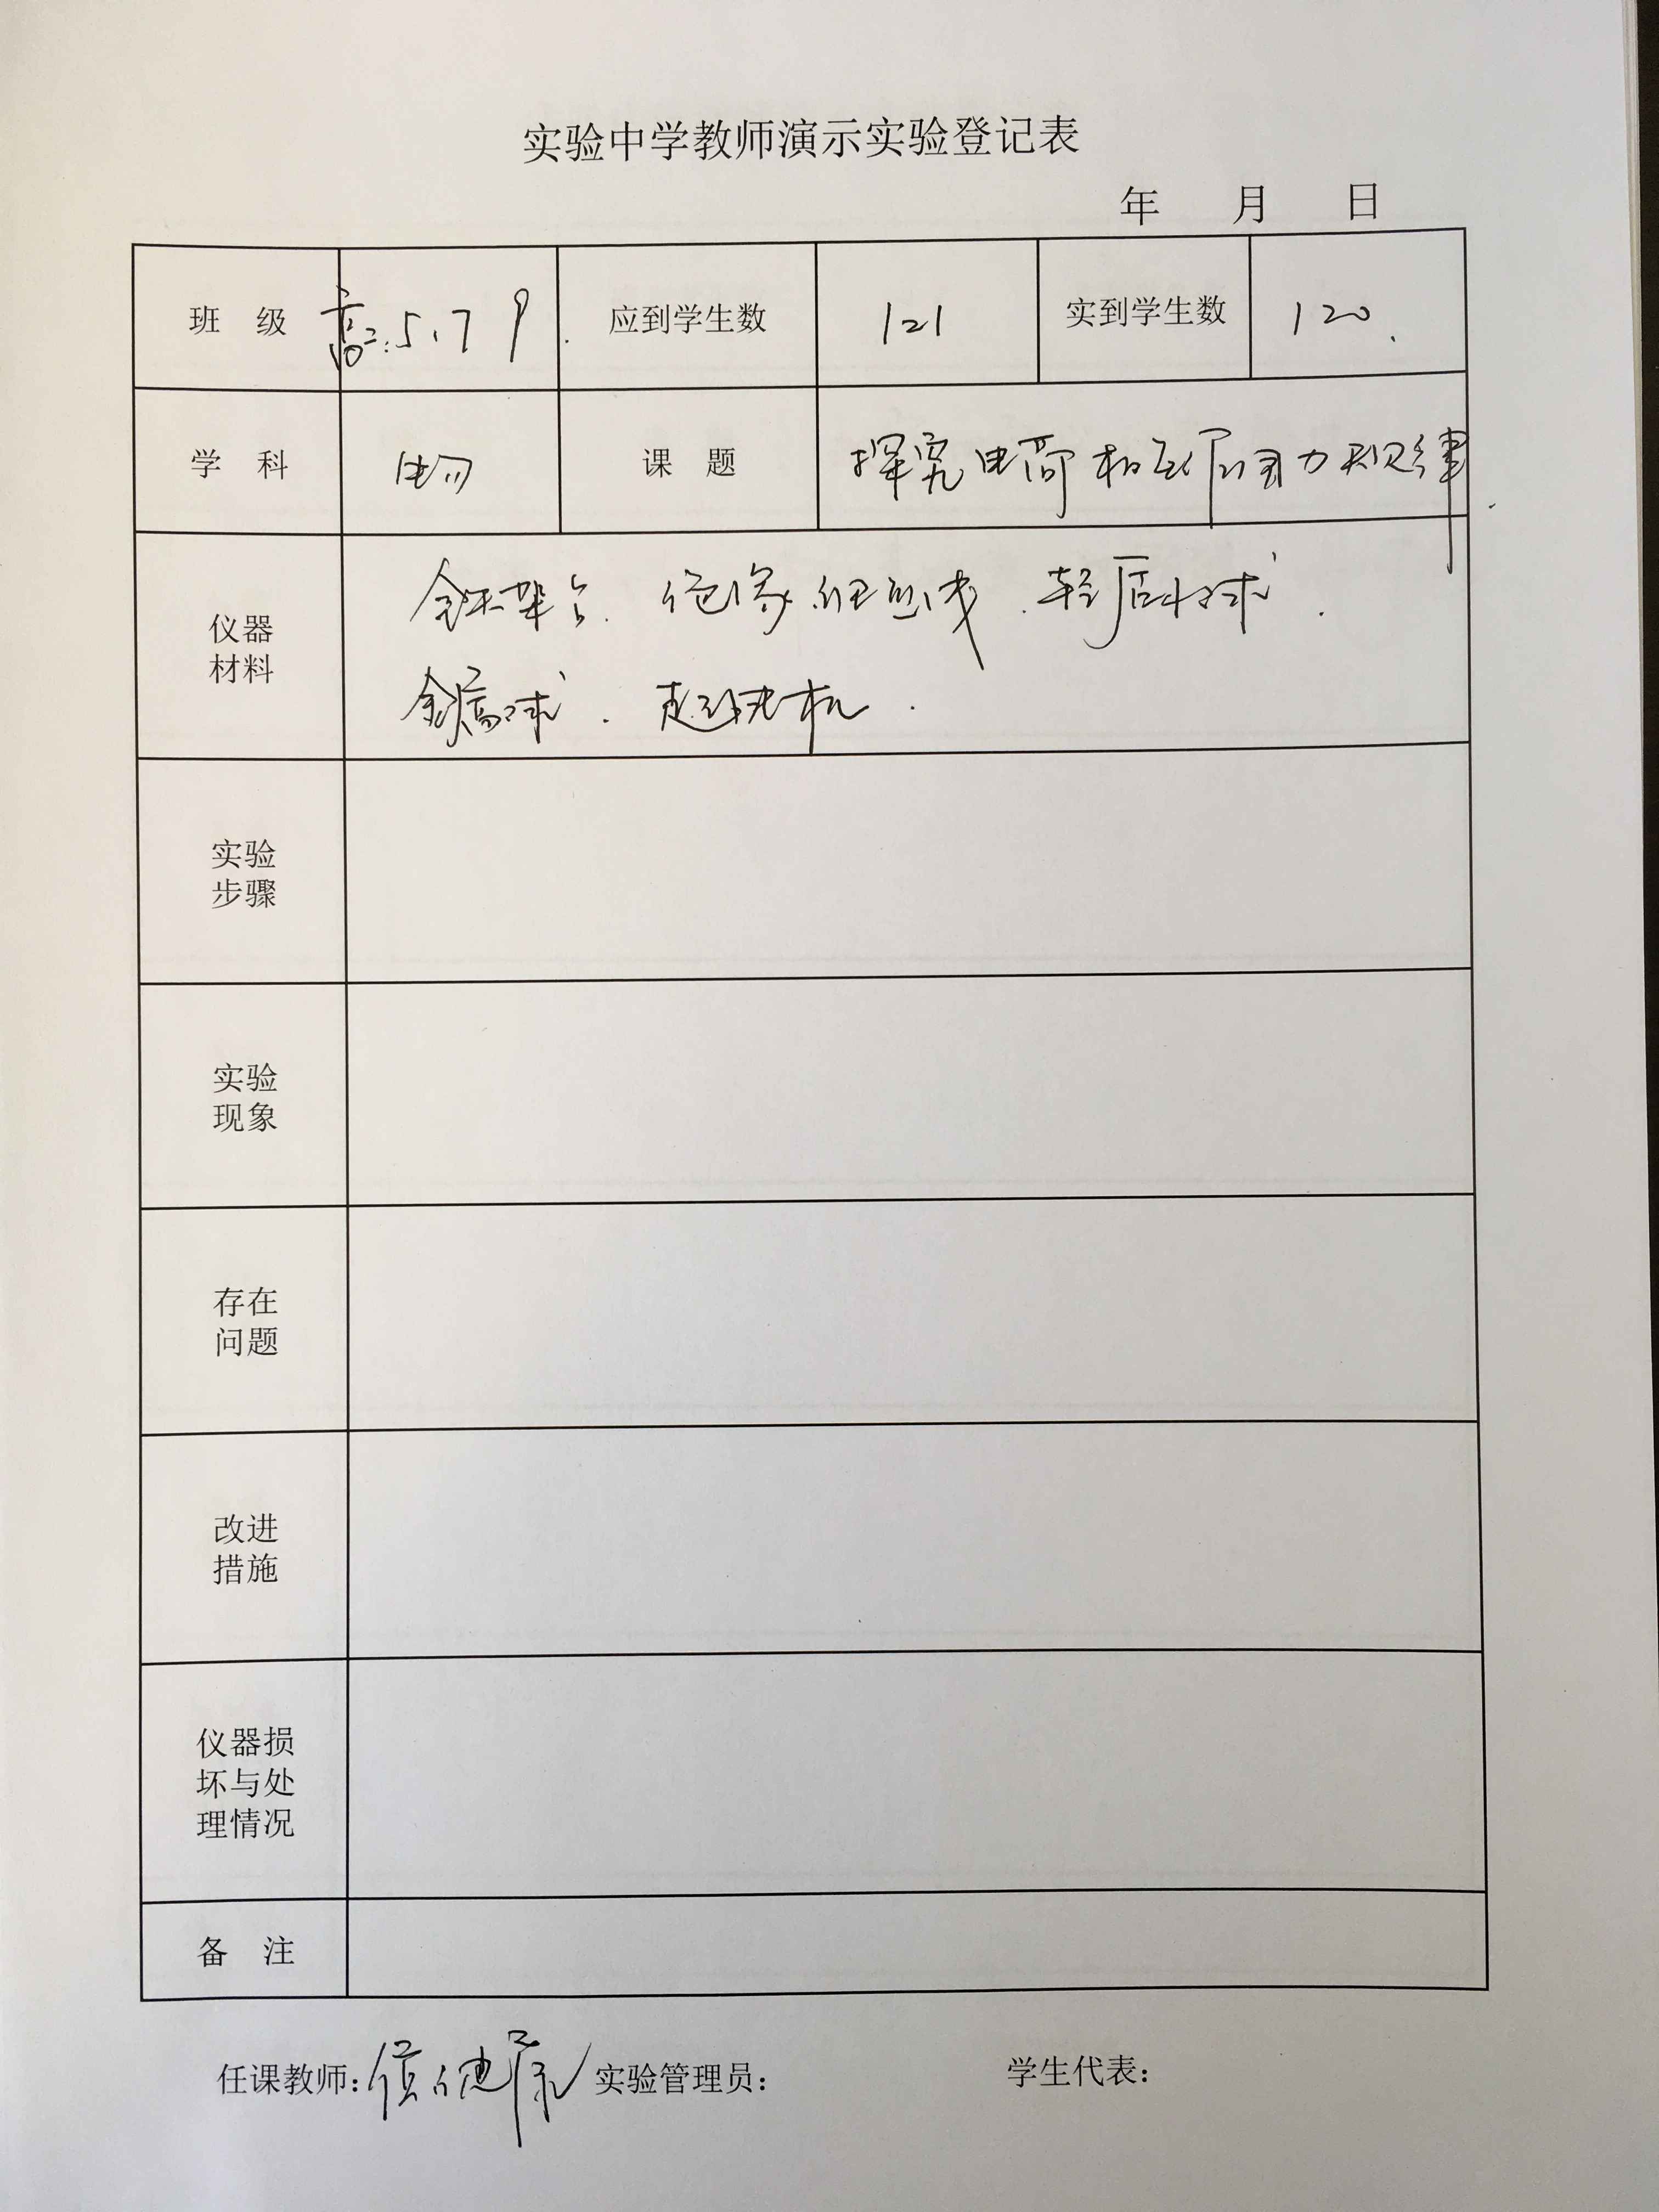 实验中学教师演示实验登记表
年 月 日
班 级 高二:5、7 9. 应到学生数 121 实到学生数 120.
学 科 物 课 题 探究电荷相互作用力规律.
仪器
材料
铁架台. 绝缘细丝线. 轻质小球.
金属球. 起电机.
实验
步骤
实验
现象
存在
问题
改进
措施
仪器损
坏与处
理情况
备 注
任课教师: 实验管理员: 学生代表: